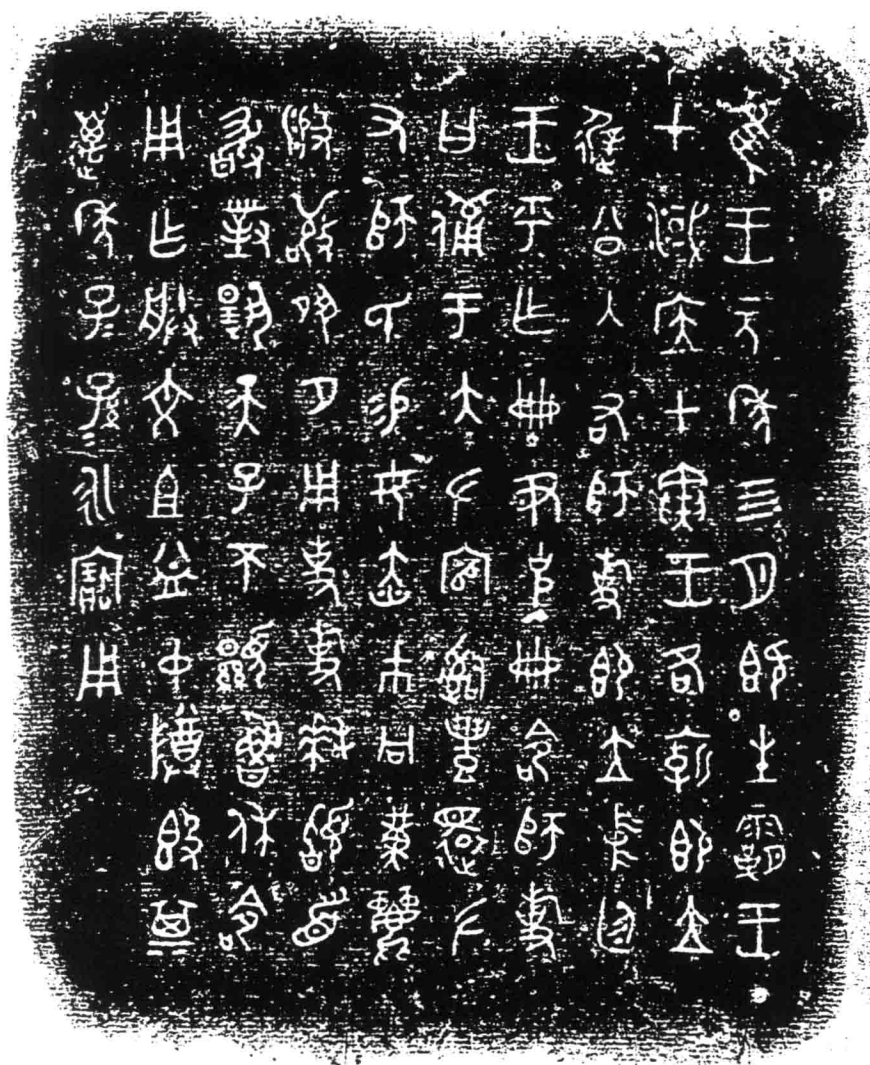 隹王元年四月既生霸王
才淢应甲寅王各廟即立
遟公入右師旋即立中廷
王乎乍冊尹克冊命師旋
曰備于大左官𤔲豐還左
又師氏易女赤巿冋黃麗
般敬夙夕用事旋拜𩒨首
敢對揚天子不顯魯休命
用乍朕文且益中尊𣪘其
邁年子=孫=永寶用